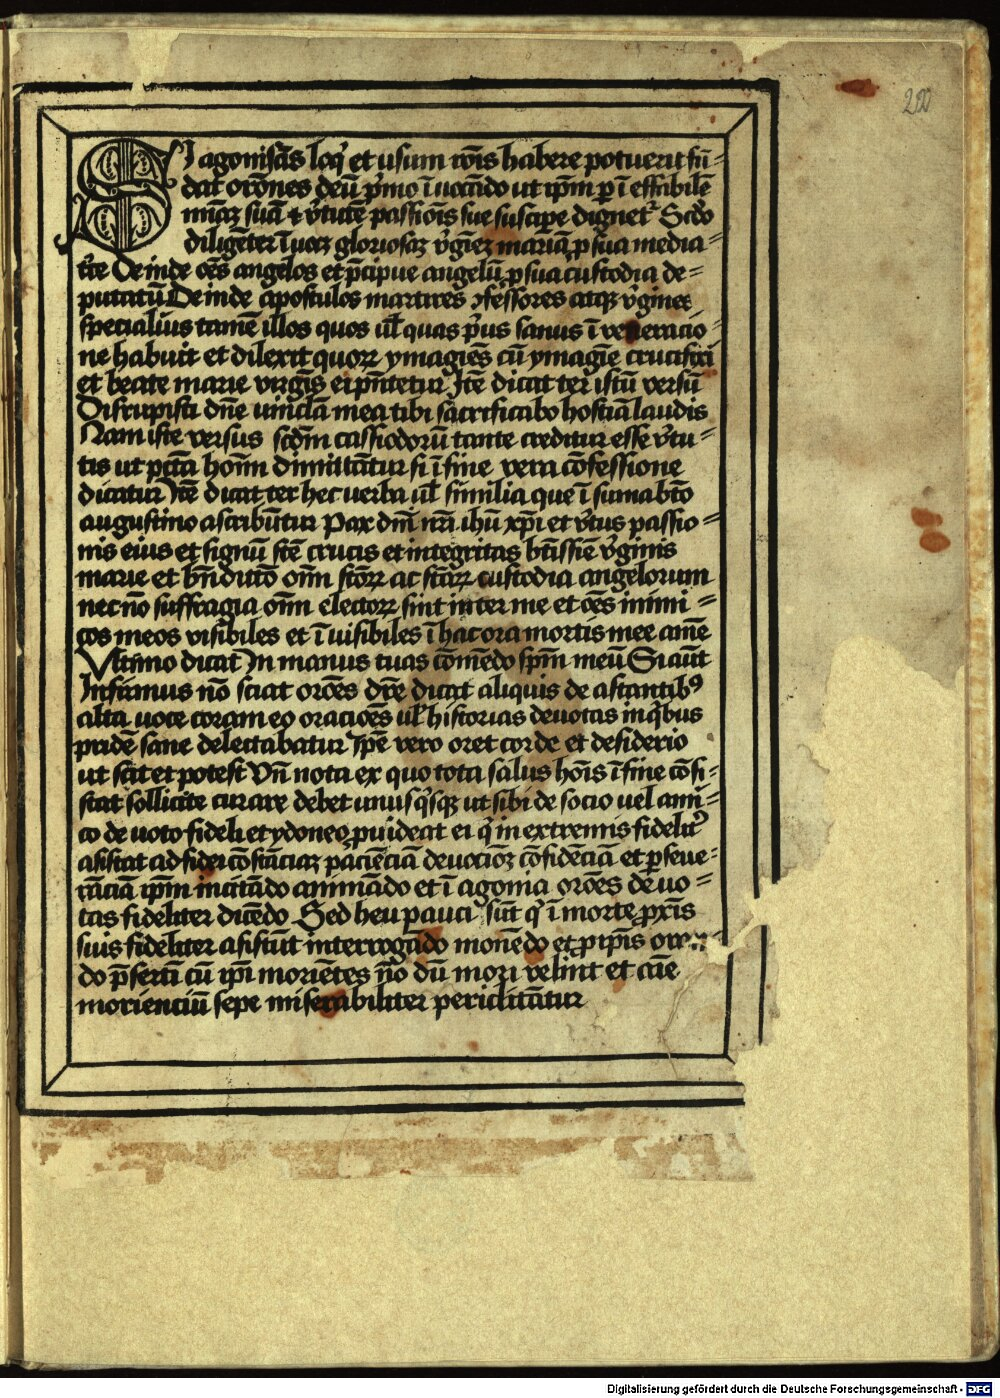 SI agonisās loq' et usum rōis habere potuerit fū=
dat orōnes deū p̄mo īuocādo ut ip̄m p̄ ī effabilē
mīaꝫ suā ⁊ v̓tutē passiōis sue suscipe dignet᷑ Scd̓o
diligēter īuocꝫ gloriosaꝫ v̓gīeꝫ mariā ꝓ sua media=
tr̄ce Deinde oēs angelos et p̄cipue angelū ꝓ sua custodia de=
putatū Deinde apostulos martires ꝯfessores atqꝫ v̓gines
specialius tamē illos quos ul̄ quas p̓us sanus ī veneracio
ne habuit et dilexit quoꝝ ymagiēs cū ymagīe crucifixi
et beate marie virgīs ei p̄ntetur Itē dicat ter istū versū
Disrupisti dn̄e uincla mea tibi sacrificabo hostiā laudis
Nam iste versus scd̄m cassiodorū tante creditur esse v̓tu=
tis ut pctā̄ hoīm dimittātur si ī fine vera cōfessione
dicatur Itē dicat ter hec uerba ul̄ similia que ī suma bt̄o
augustino ascribūtur Pax dn̄i nr̄i ihū xp̄i et v̓tus passio=
nis eius et signū scē crucis et integritas bt̄issīe v̓ginis
marie et bn̄dictō oīm sc̄oꝝ ac sc̄aꝝ custodia angelorum
necnō suffragia oīm electoꝝ sint inter me et oēs inimi=
cos meos visibiles et īuisibiles ī hac ora mortis mee amē
Vltimo dicat In manus tuas cōmēdo sp̄m meū Si aūt
Infirmus nō sciat orōes dr̄e dicat aliquis de astantibꝰ
alta uoce coram eo oracioēs ul̄ historias deuotas in q̓bus
pridē sane delectabatur Ip̄e vero oret corde et desiderio
ut scit et potest Vn̄ nota ex quo tota salus hoīs ī fine cōsi=
stat sollicite curare debet unusq̓sqꝫ ut sibi de socio uel ami=
co deuoto fideli et ydoneo ꝓuideat ei q̓ in extremis fidelit̓
assistat ad fidei cōstāciaꝫ paciēciā deuocioꝫ cōfidēciā et ꝑseue=
rāciā ip̄m incitādo animādo et ī agonia orōes deuo=
tas fideliter dicēdo Sed heu pauci sūt q̓ ī morte ꝓxīs
suis fideliter assistūt interrogādo monēdo et ꝓ ip̄is oran
do p̄sertī cū ip̄i moriētes nō dū mori velint et aīe
moriencium sepe miserabiliter periclitātur
Digitalisierung gefördert durch die Deutsche Forschungsgemeinschaft - DFG